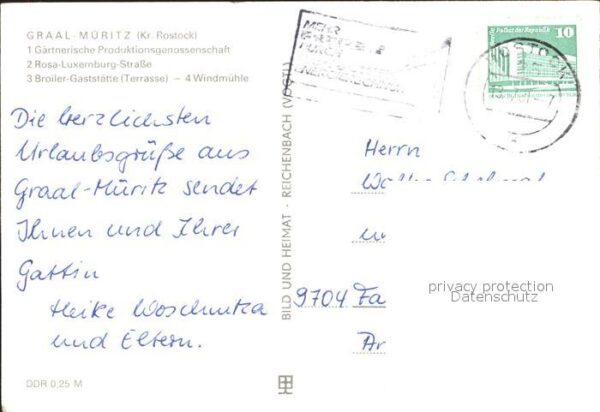 GRAAL-MÜRITZ (Kr. Rostock)
1 Gärtnerische Produktionsgenossenschaft
2 Rosa-Luxemburg-Straße
3 Broiler-Gaststätte (Terrasse) – 4 Windmühle
Die herzlichsten
Urlaubsgrüße aus
Graal-Müritz sendet
Ihnen und Ihrer
Gattin
Heike
und Eltern.
DDR 0,25 M
BILD UND HEIMAT · REICHENBACH (VOGTL)
MEHR
Palast der Republik
10
ROSTOCK
Herrn
9704 Fa
privacy protection
Datenschutz